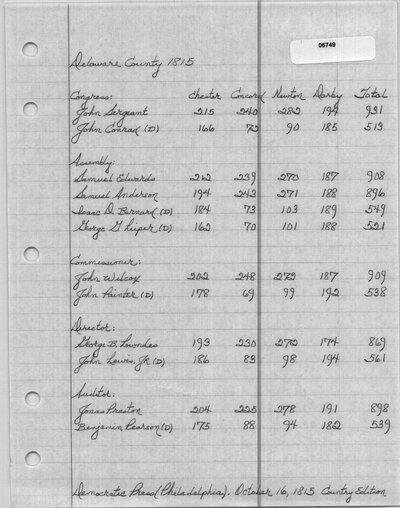 06749
Delaware County 1815
Congress: Chester Concord Newton Darby Total
John Sergeant 215 240 282 194 931
John Conrad (D) 166 72 90 185 513
Assembly:
Samuel Edwards 212 239 270 187 908
Samuel Anderson 194 243 271 188 896
Isaac D. Barnard (D) 184 73 103 189 549
George G Leiper (D) 162 70 101 188 521
Commissioner:
John Wilcox 202 248 272 187 909
John Painter (D) 178 69 99 192 538
Director:
George B. Lowndes 193 230 272 174 869
John Lewis, Jr (D) 186 83 98 194 561
Auditor:
Jonas Preston 204 225 278 191 898
Benjamin Pearson (D) 175 88 94 182 539
Democratic Press (Philadelphia). October 16, 1815 Country Edition